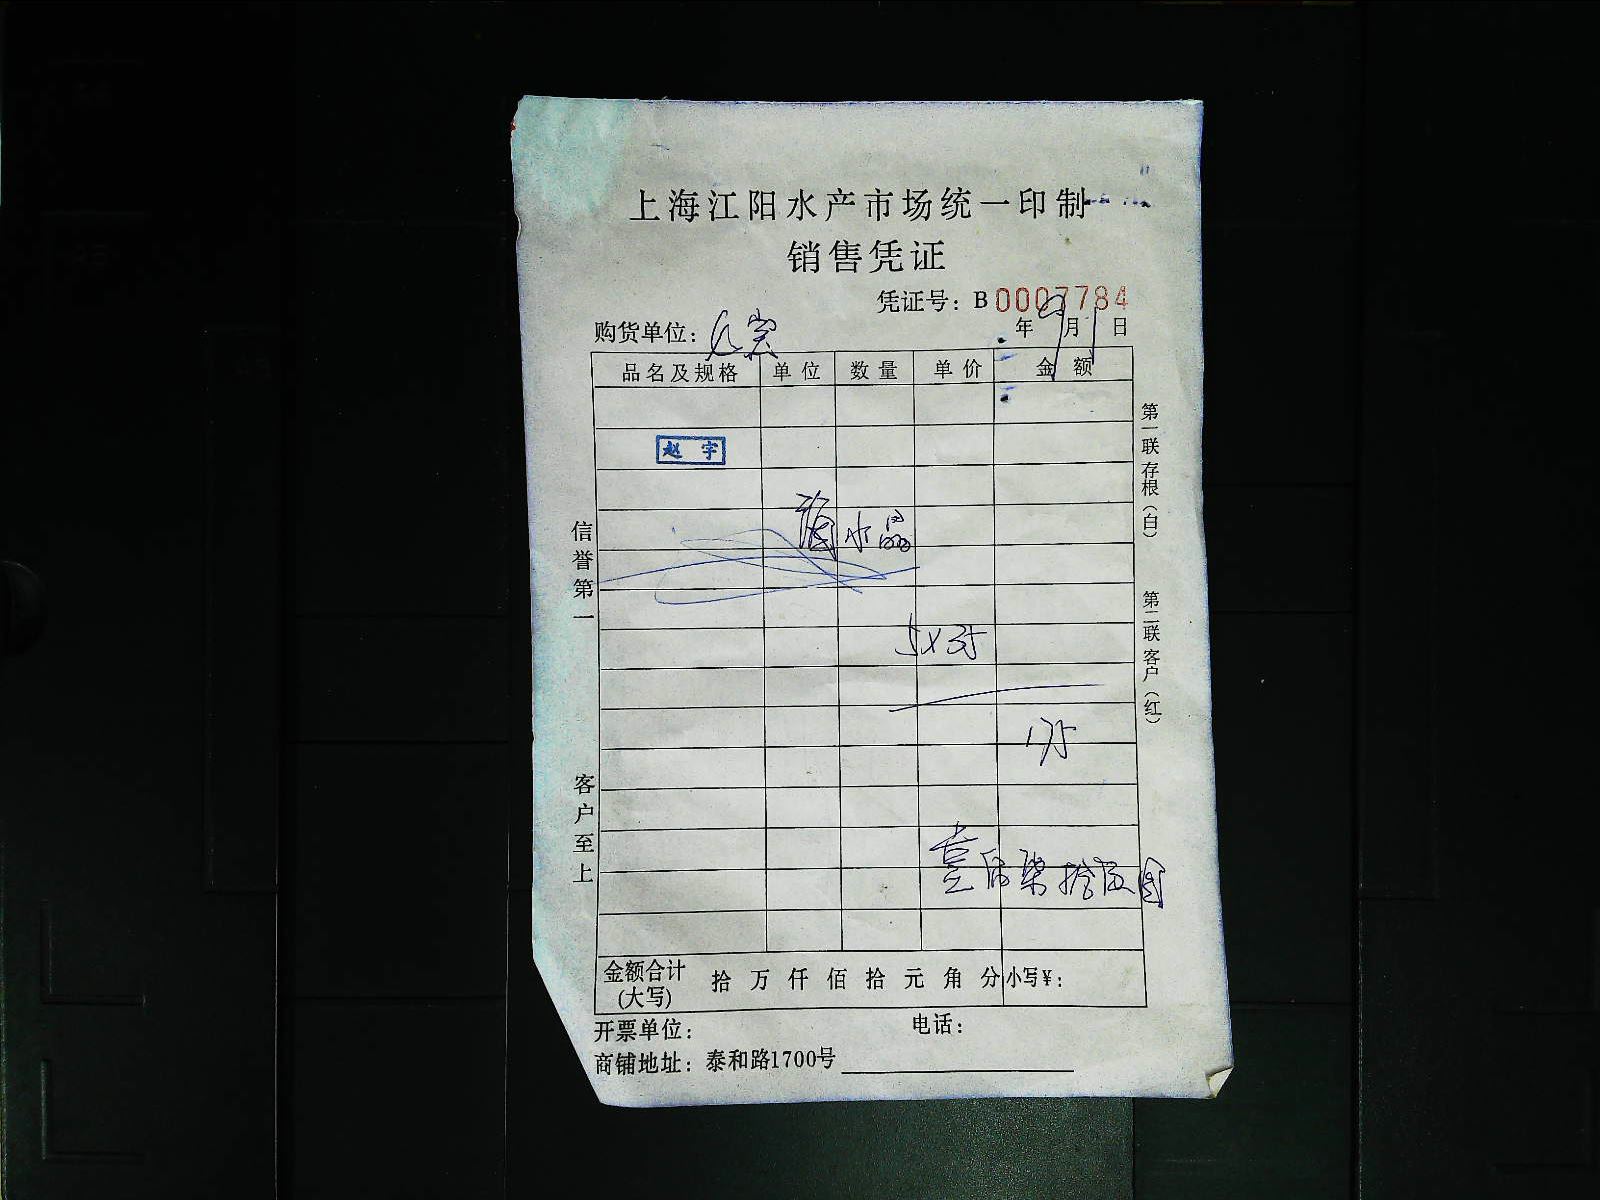 上海江阳水产市场统一印制
销售凭证
凭证号：B0007784
购货单位：
年9月1日
品名及规格 单位 数量 单价 金额
赵宇
水晶
5×35
175
壹佰柒拾伍圆
金额合计(大写) 拾万仟佰拾元角分 小写¥：
开票单位： 电话：
商铺地址：泰和路1700号
信誉第一
客户至上
第一联存根（白）
第二联客户（红）